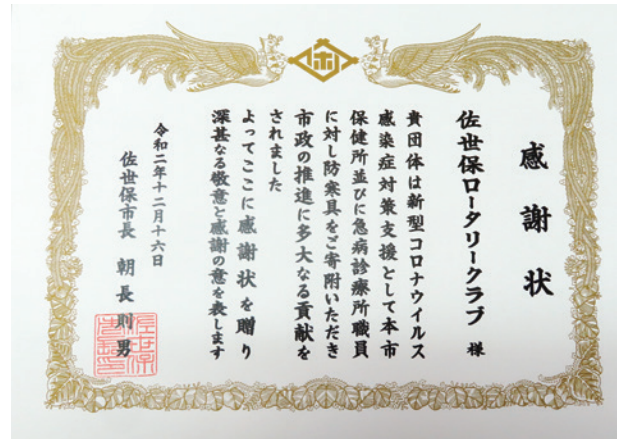 感謝状
佐世保ロータリークラブ 様
貴団体は新型コロナウイルス
感染症対策支援として本市
保健所並びに急病診療所職員
に対し防寒具をご寄附いただき
市政の推進に多大なる貢献を
されました
よってここに感謝状を贈り
深甚なる敬意と感謝の意を表します
令和二年十二月十六日
佐世保市長 朝長則男